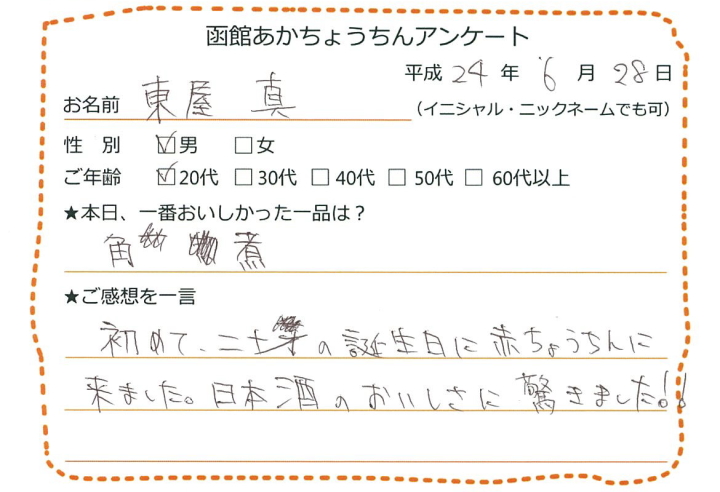 函館あかちょうちんアンケート
平成 24 年 6 月 28 日
お名前 東屋 真 (イニシャル・ニックネームでも可)
性 別 ☑男 □女
ご年齢 ☑20代 □30代 □40代 □50代 □60代以上
★本日、一番おいしかった一品は?
角 煮
★ご感想を一言
初めて、二十 の誕生日に赤ちょうちんに
来ました。日本酒のおいしさに驚きました!!